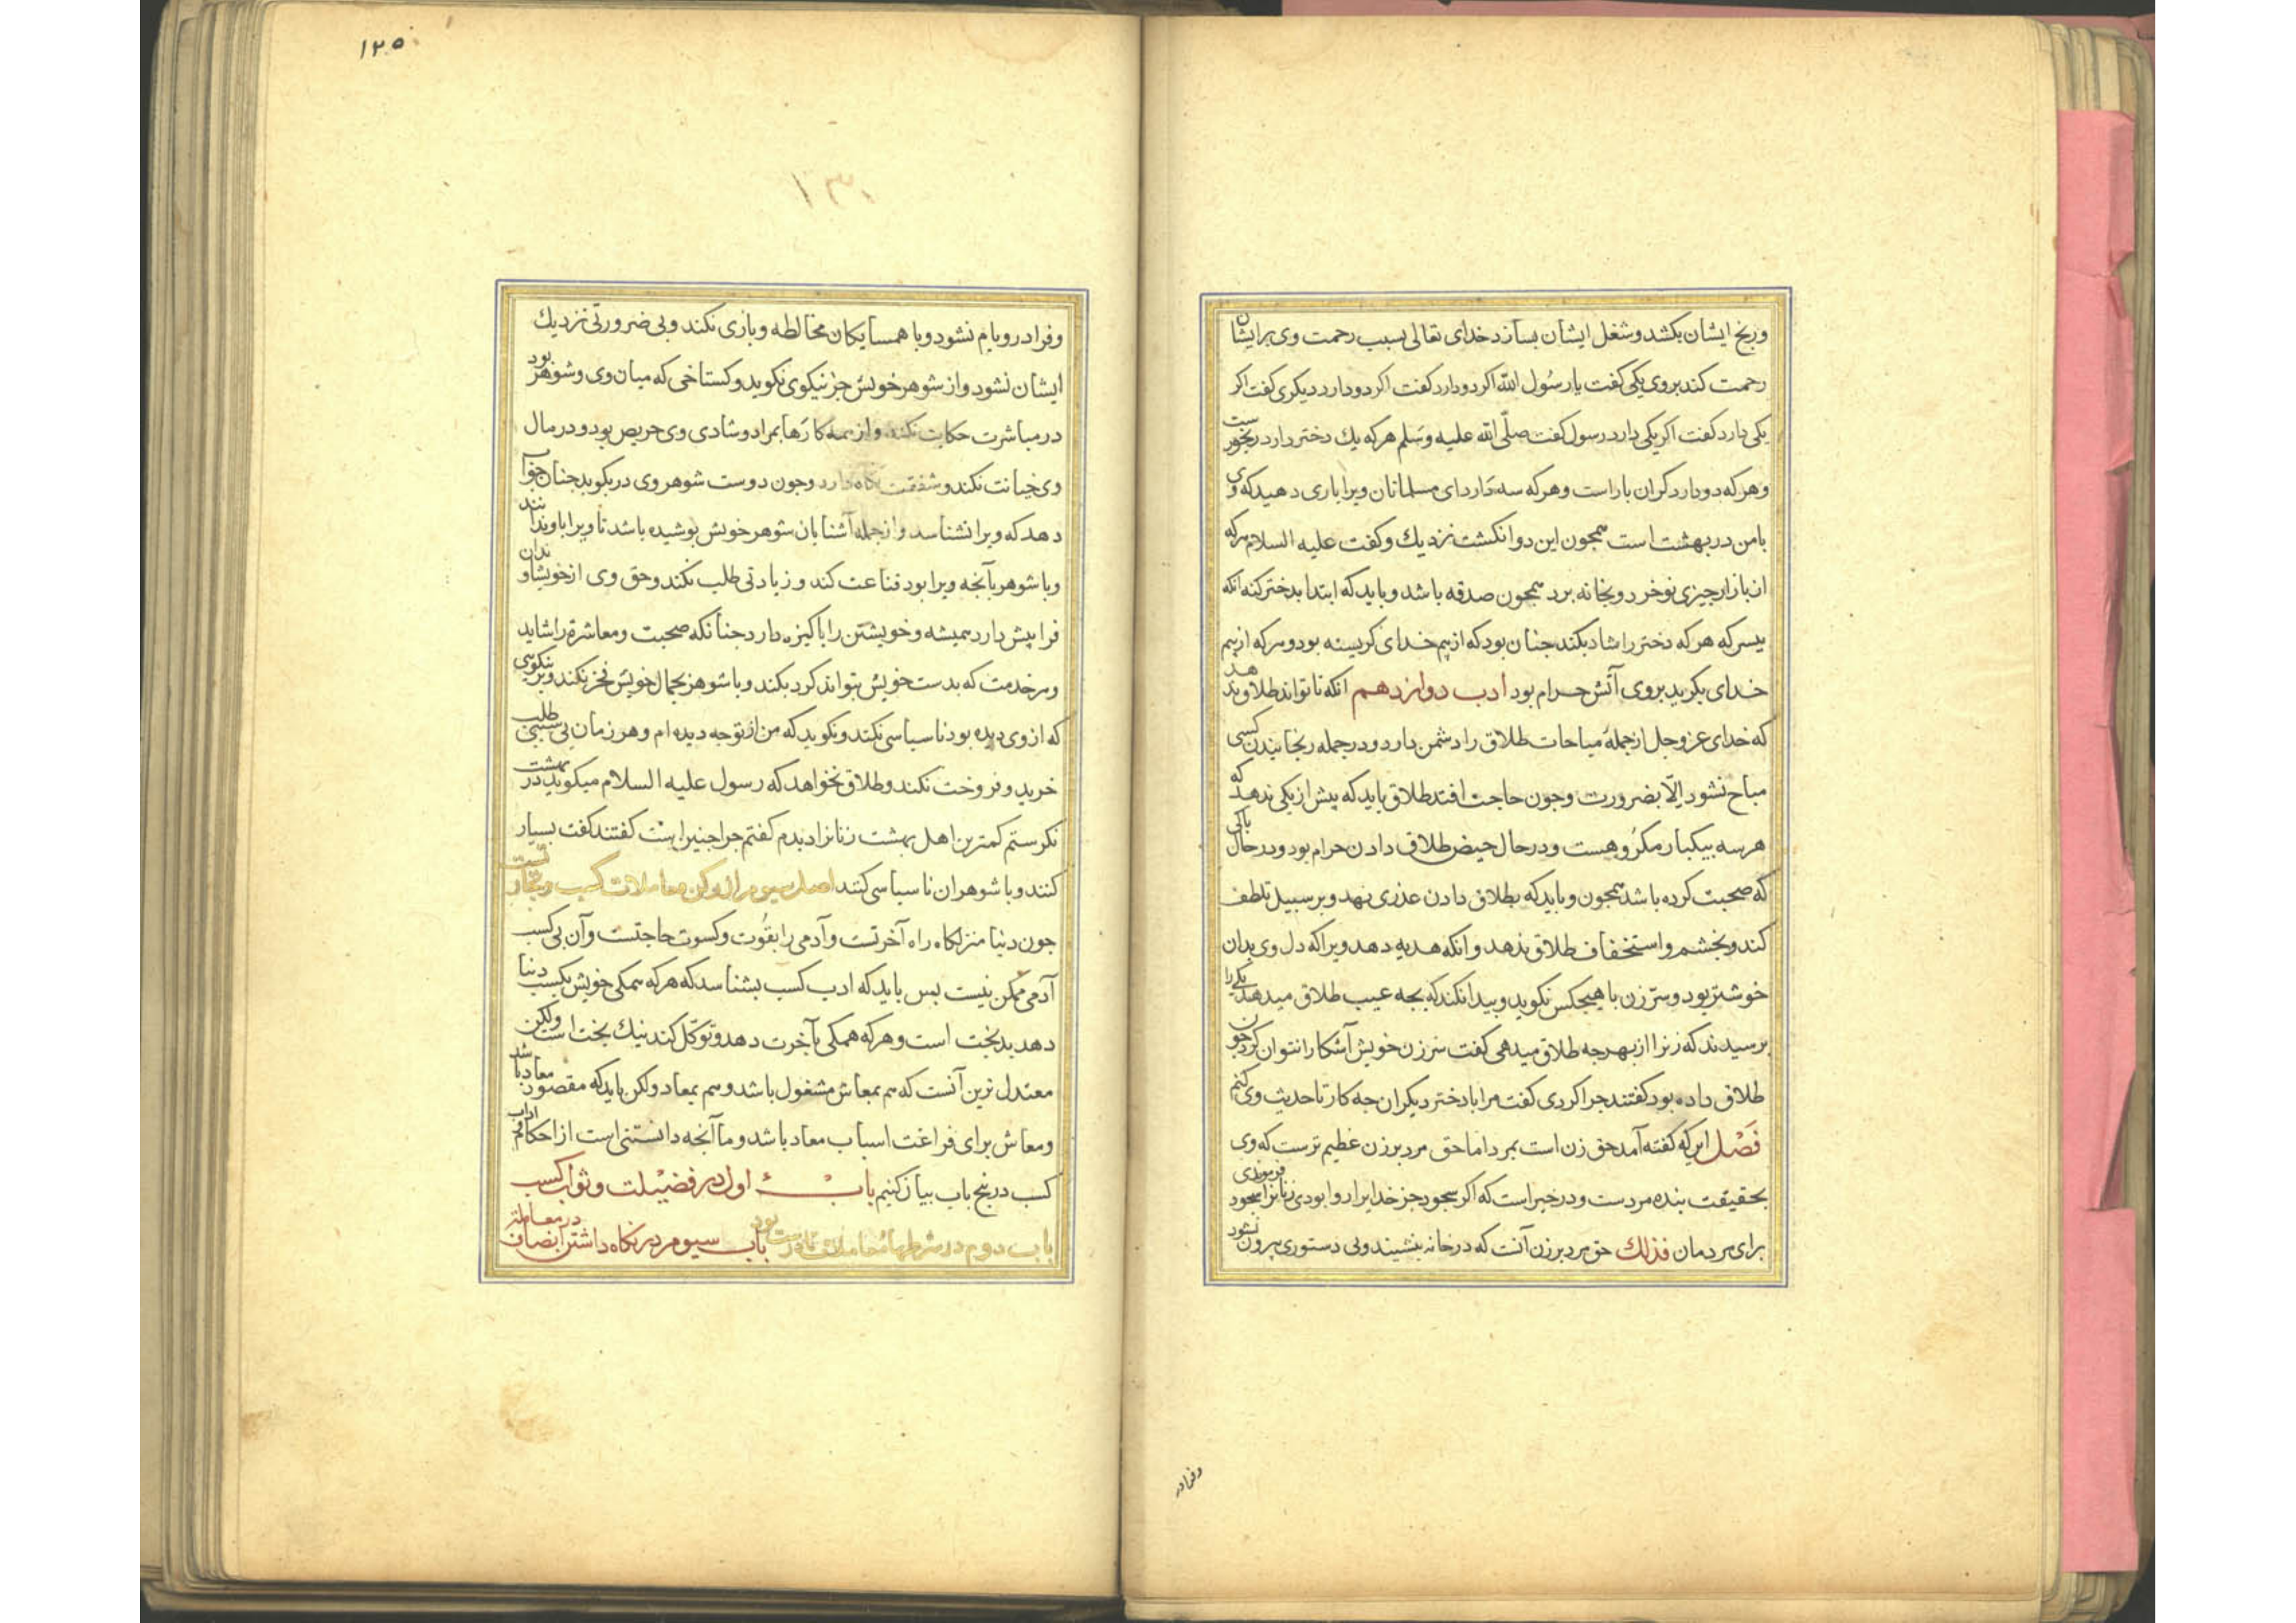 ورنج ایشان بکشد وشغل ایشان بسازد خدای تعالی بسبب رحمت وی برایشان
رحمت کند بروی یکی کفت یا رسُول الله اکر دو دارد کفت اکر دو دارد دیکری کفت اکر
یکی دارد کفت اکر یکی دارد رسول کفت صلّی الله علیه وسَلم هرکه یك دختر دارد رنجورست
وهرکه دو دارد کران باراست وهرکه سه دَارد ای مسلمانان ویرا یاری دهید که وی
بامن در بهشت است همجون این دوانکشت نزدیك وکفت علیه السلام هرکه
از بازار جیزی نو خرد وبخانه برد همجون صدقه باشد وباید که ابتدا بدختر کند انکه
بپسر که هرکه دختر را شاد بکند جنان بود که از بیم خدای کریسته بود وهرکه از بیم
خدای بکرید بروی آتش حرام بود ادب دوازدهم آنکه تا تواند طلاق ندهد
که خدای عزوجل ازجملهٔ مباحات طلاق را دشمن دارد ودرجمله رنجانیدن کسی
مباح نشود اِلّا بضرورت وجون حاجت افتد طلاق باید که بیش از یکی ندهد که
هرسه بیکبار مکرُوهست ودرحال حیض طلاق دادن حرام بود ودرحال باکی
که صحبت کرده باشد همجون وباید که بطلاق دادن عذری نهد وبر سبیل تلطف
کند وبخشم واستخفاف طلاق ندهد وانکه هدیه دهد ویرا که دل وی بدان
خوشتر بود وسرّ زن با هیجکس نکوید وبیدا نکند که بجه عیب طلاق میدهد یکی را
برسیدند که زنرا از بهرجه طلاق میدهی کفت سرّ زن خویش آشکارا نتوان کرد جون
طلاق داده بود کفتند جرا کردی کفت مرا با دختر دیکران جه کار تا حدیث وی کنم
فَصْل این که کفته آمد حق زن است بمرد اما حق مرد بر زن عظیم ترست که وی
بحقیقت بنده مردست ودر خبر است که اکر سجود جز خدایرا روا بودی زنانرا سجود فرموندی
برای مردمان فذلك حق مرد بر زن آنست که درخانه بنشیند وبی دستوری بیرون نشود
وفرادر
١٢٥
١٣١
وفرا در وبام نشود وبا همسایکان مخالطه وبازی نکند وبی ضرورتی نزدیك
ایشان نشود واز شوهر خویش جز نیکوی نکوید وکستاخی که میان وی وشوهر بود
در مباشرت حکایت نکند واز همه کارها بمراد وشادی وی حریص بود ودر مال
وی خیانت نکند وشفقت نکاه دارد وجون دوست شوهر وی در بکوبد جنان جواب
دهد که ویرا نشناسد وازجمله آشنایان شوهر خویش بوشیده باشد تا ویرا باز ندانند
وبا شوهر بآنجه ویرا بود قناعت کند وزیادتی طلب نکند وحق وی از خویشاوندان
فرا پیش دارد همیشه وخویشتن را باکیزه دارد جنانکه صحبت ومعاشرة را شاید
وهرخدمت که بدست خویش بتواند کرد بکند وبا شوهر بجمال خویش فخر نکند وبر نیکوئی
که از وی دیده بود ناسباسی نکند ونکوید که من از تو جه دیده ام وهر زمان بی سببی طلب
خرید وفروخت نکند وطلاق نخواهد که رسول علیه السلام میکوید در بهشت
نکرستم کمترین اهل بهشت زنانرا دیدم کفتم جرا جنین است کفتند کفت بسیار
کنند وبا شوهران ناسباسی کنند اصل سیوم از رکن معاملات کسب وتجارتست
جون دنیا منزلکاه راه آخرتست وآدمی را بقُوت وکسوت حاجتست وآن بی کسب
آدمی ممکن نیست بس باید که ادب کسب بشناسد که هرکه همکی خویش بکسب دنیا
دهد بدبخت است وهرکه همکی بآخرت دهد وتوکّل کند نیك بخت است ولکن
معتدل ترین آنست که هم بمعاش مشغول باشد وهم بمعاد ولکن باید که مقصود معاد باشد
ومعاش برای فراغت اسباب معاد باشد وما آنجه دانستنی است از احکام واداب
کسب در پنج باب بیان کنیم باب اول در فضیلت وثواب کسب
باب دوم در شرطهاء معاملات تا درست بود باب سیوم در نکاه داشتن انصاف در معاملة